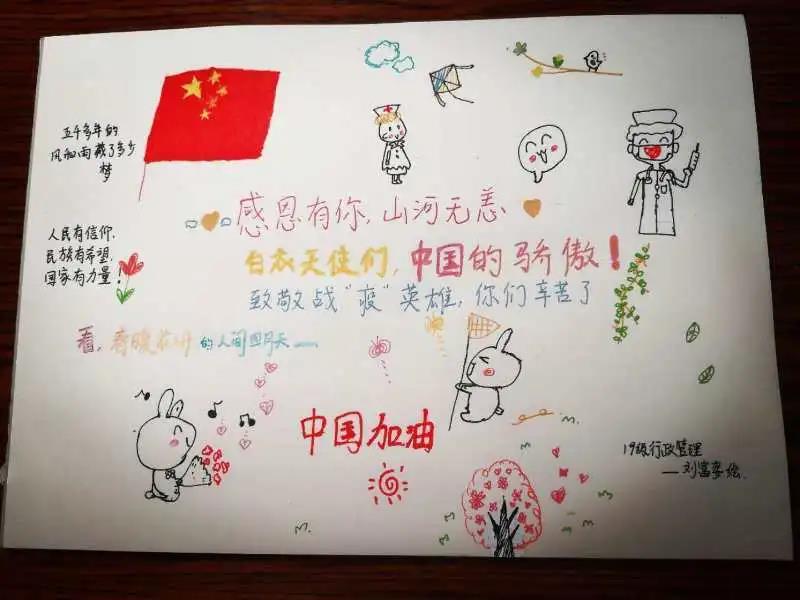 五千多年的
风和雨藏了多少
梦
感恩有你,山河无恙
人民有信仰,
民族有希望,
国家有力量!
白衣天使们,中国的骄傲!
致敬战"疫"英雄,你们辛苦了
看,春暖花开的人间四月天——
中国加油
19级行政管理
——刘富 绘